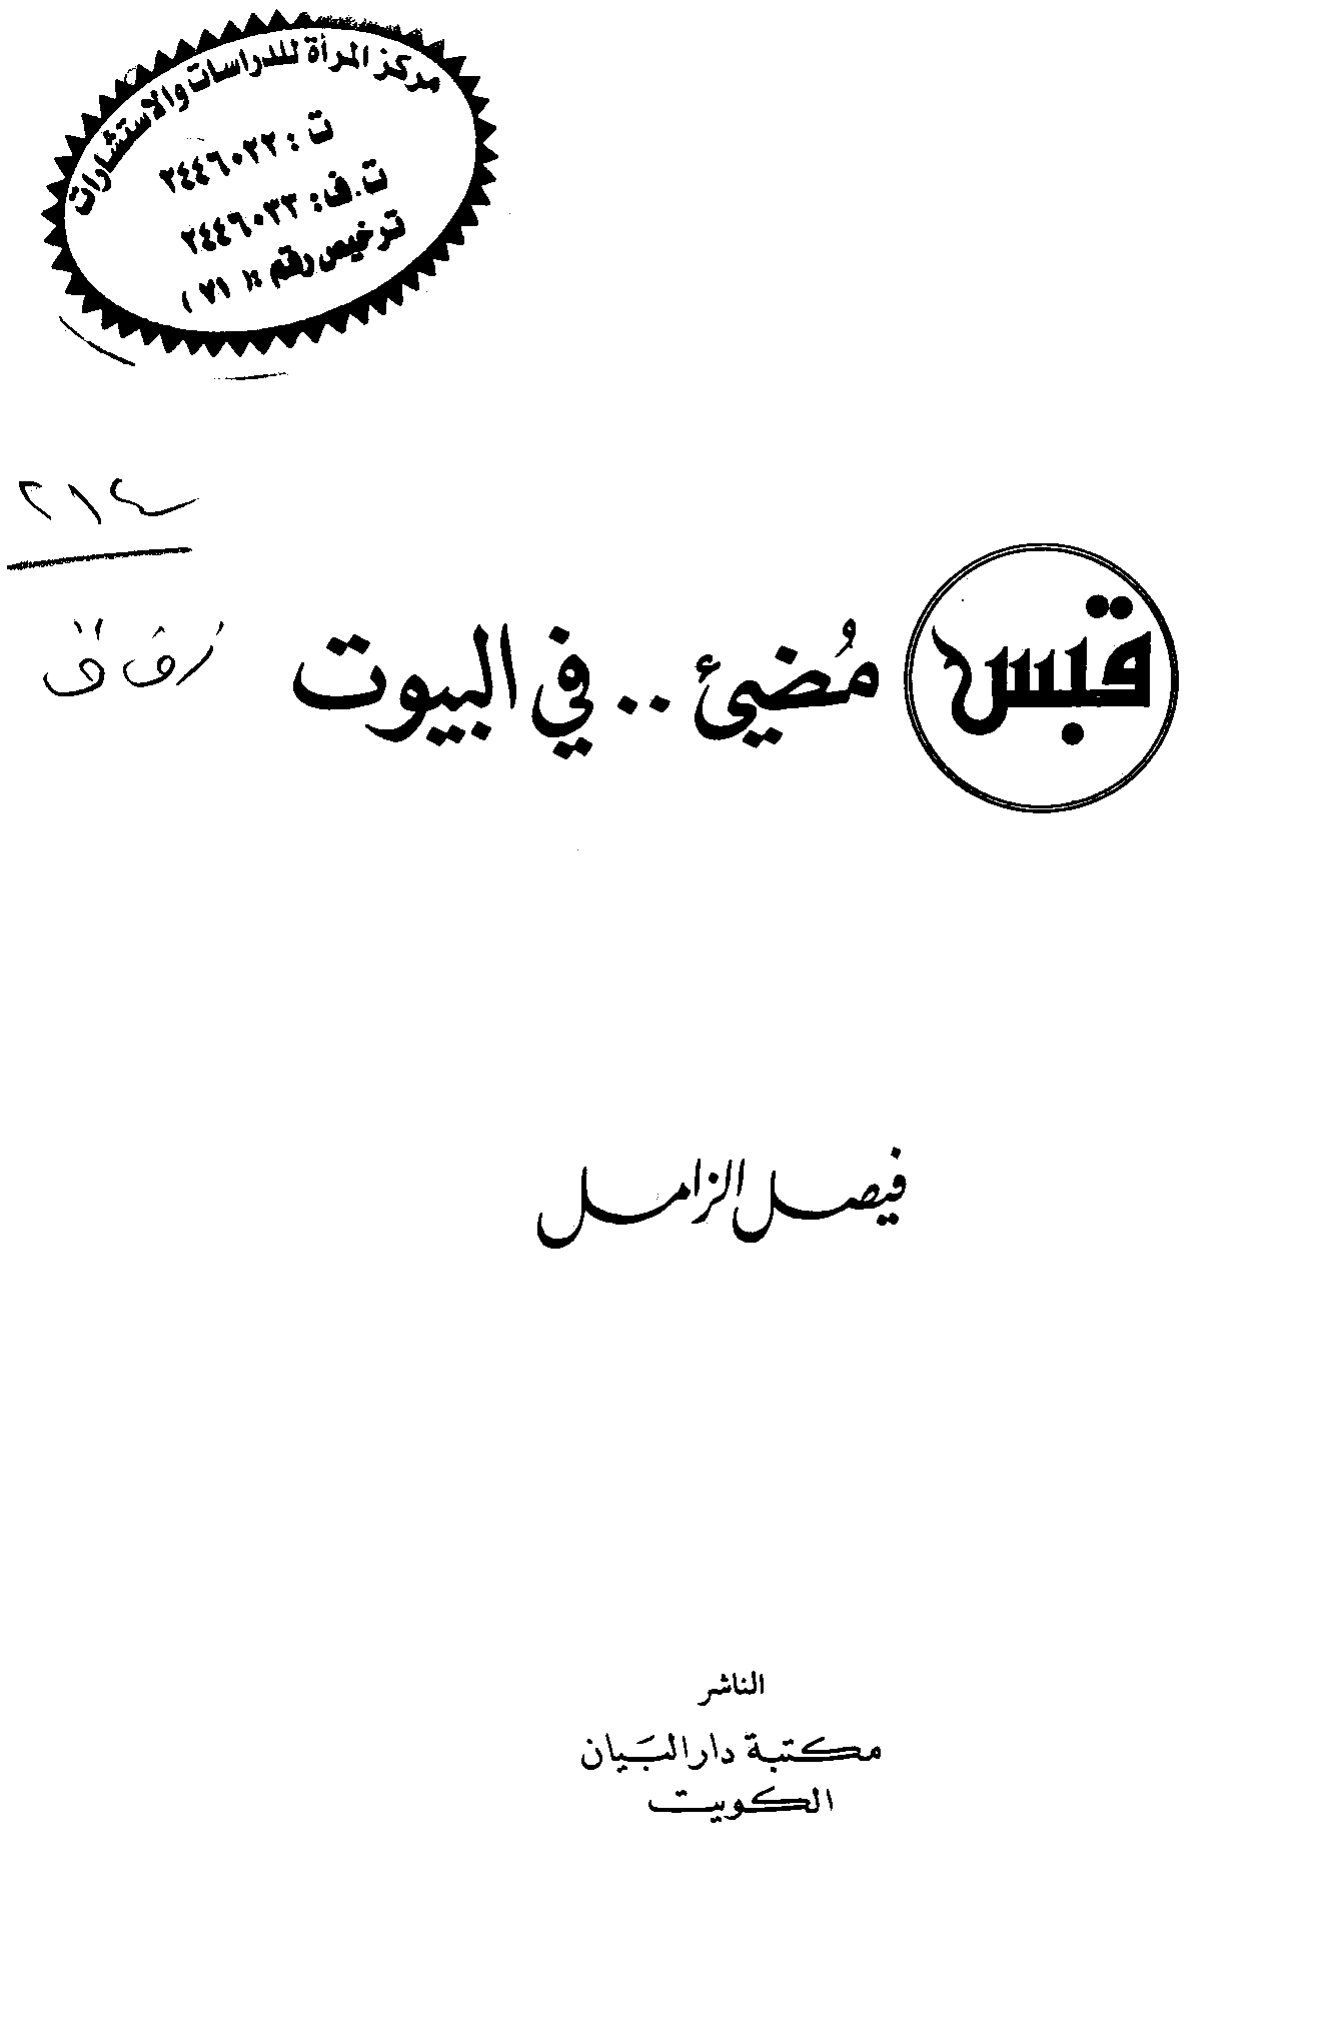 مركز المرأة للدراسات والاستشارات
ت : ٢٤٤٦٠٢٢
ت.ف: ٢٤٤٦٠٣٣
ترخيص رقم :( ٧١ )
٢١٤
قبس مُضيئ .. في البيوت
فيصل الزامل
الناشر
مكتبة دار البيان
الكويت